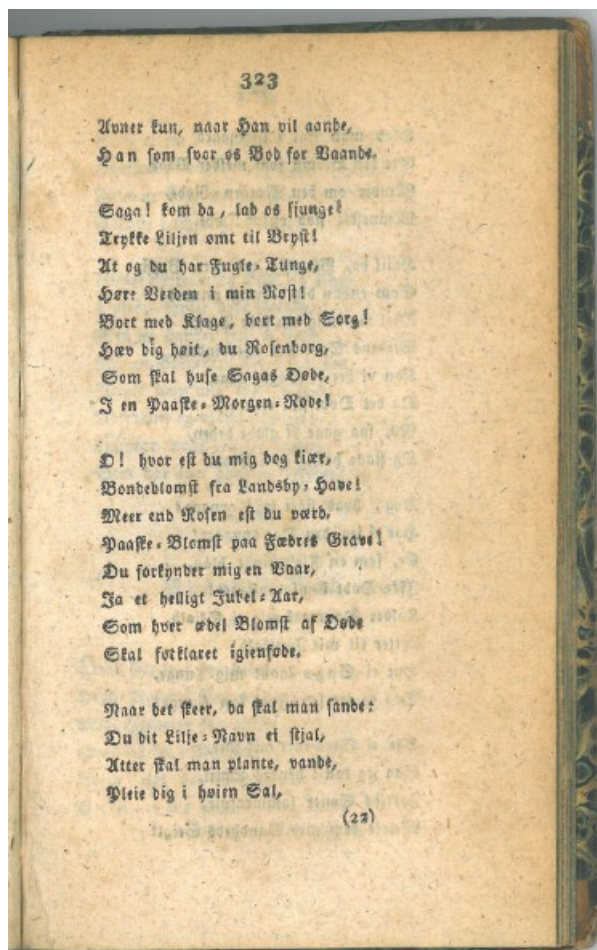 323
Avner kun, naar Han vil aande,
Han som svor os Bod for Vaande.
Saga! kom da, lad os sjunge!
Trykke Liljen ømt til Bryst!
At og du har Fugle-Tunge,
Høre Verden i min Røst!
Bort med Klage, bort med Sorg!
Hæv dig høit, du Rosenborg,
Som skal huse Sagas Døde,
I en Paaske-Morgen-Røde!
O! hvor est du mig dog kiær,
Bondeblomst fra Landsby-Have!
Meer end Rosen est du værd,
Paaske-Blomst paa Fædres Grave!
Du forkynder mig en Vaar,
Ja et helligt Jubel-Aar,
Som hver ædel Blomst af Døde
Skal forklaret igienføde.
Naar det skeer, da skal man sande:
Du dit Lilje-Navn ei stjal,
Atter skal man plante, vande,
Pleie dig i høien Sal,
(22)